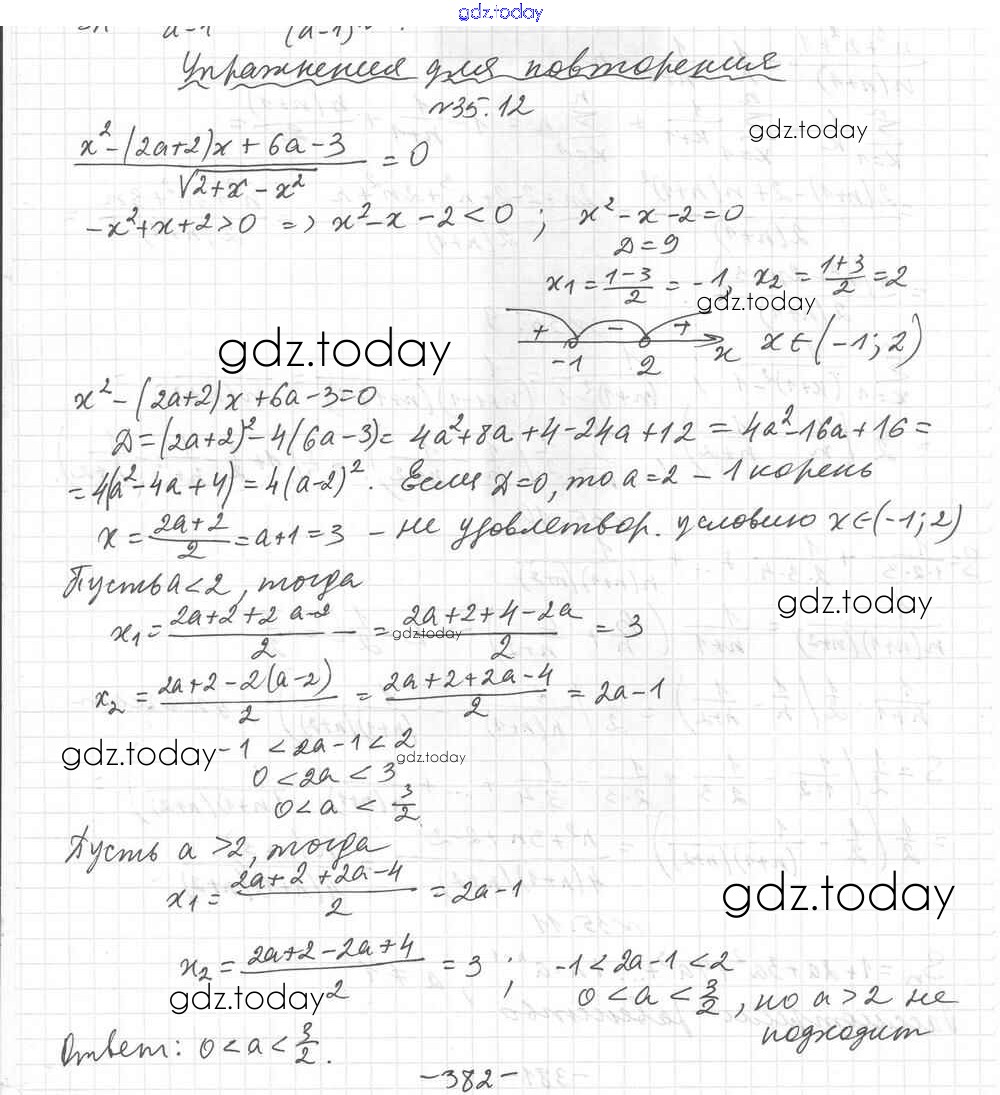 gdz.today
a-1 (a-1)²
Упражнения для повторения
№35.12
gdz.today
(x²-(2a+2)x+6a-3)/√(2+x-x²) = 0
-x²+x+2>0 => x²-x-2<0 ; x²-x-2=0
Д=9
x₁=(1-3)/2=-1, x₂=(1+3)/2=2
gdz.today
+ - + x x∈(-1;2)
-1 2
gdz.today
x²-(2a+2)x+6a-3=0
Д=(2a+2)²-4(6a-3)=4a²+8a+4-24a+12=4a²-16a+16=
=4(a²-4a+4)=4(a-2)². Если Д=0, то a=2 - 1 корень
x=(2a+2)/2=a+1=3 - не удовлетвор. условию x∈(-1;2)
Пусть a<2, тогда
gdz.today
x₁=(2a+2+2 a-2)/2=(2a+2+4-2a)/2=3
gdz.today
x₂=(2a+2-2(a-2))/2=(2a+2+2a-4)/2=2a-1
gdz.today -1<2a-1<2 gdz.today
0<2a<3
0<a<3/2
Пусть a>2, тогда
x₁=(2a+2+2a-4)/2=2a-1
gdz.today
x₂=(2a+2-2a+4)/2=3 ; -1<2a-1<2
gdz.today 0<a<3/2, но a>2 не
подходит
Ответ: 0<a<3/2.
-382-